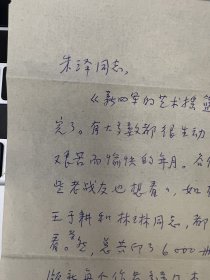 朱泽同志，
《新四军的艺术摇篮
完了。有大多数都很生动
艰苦而愉快的年月。各
些老战友也想看，如
王于耕和林琳同志，都
看。 总共印了6000册